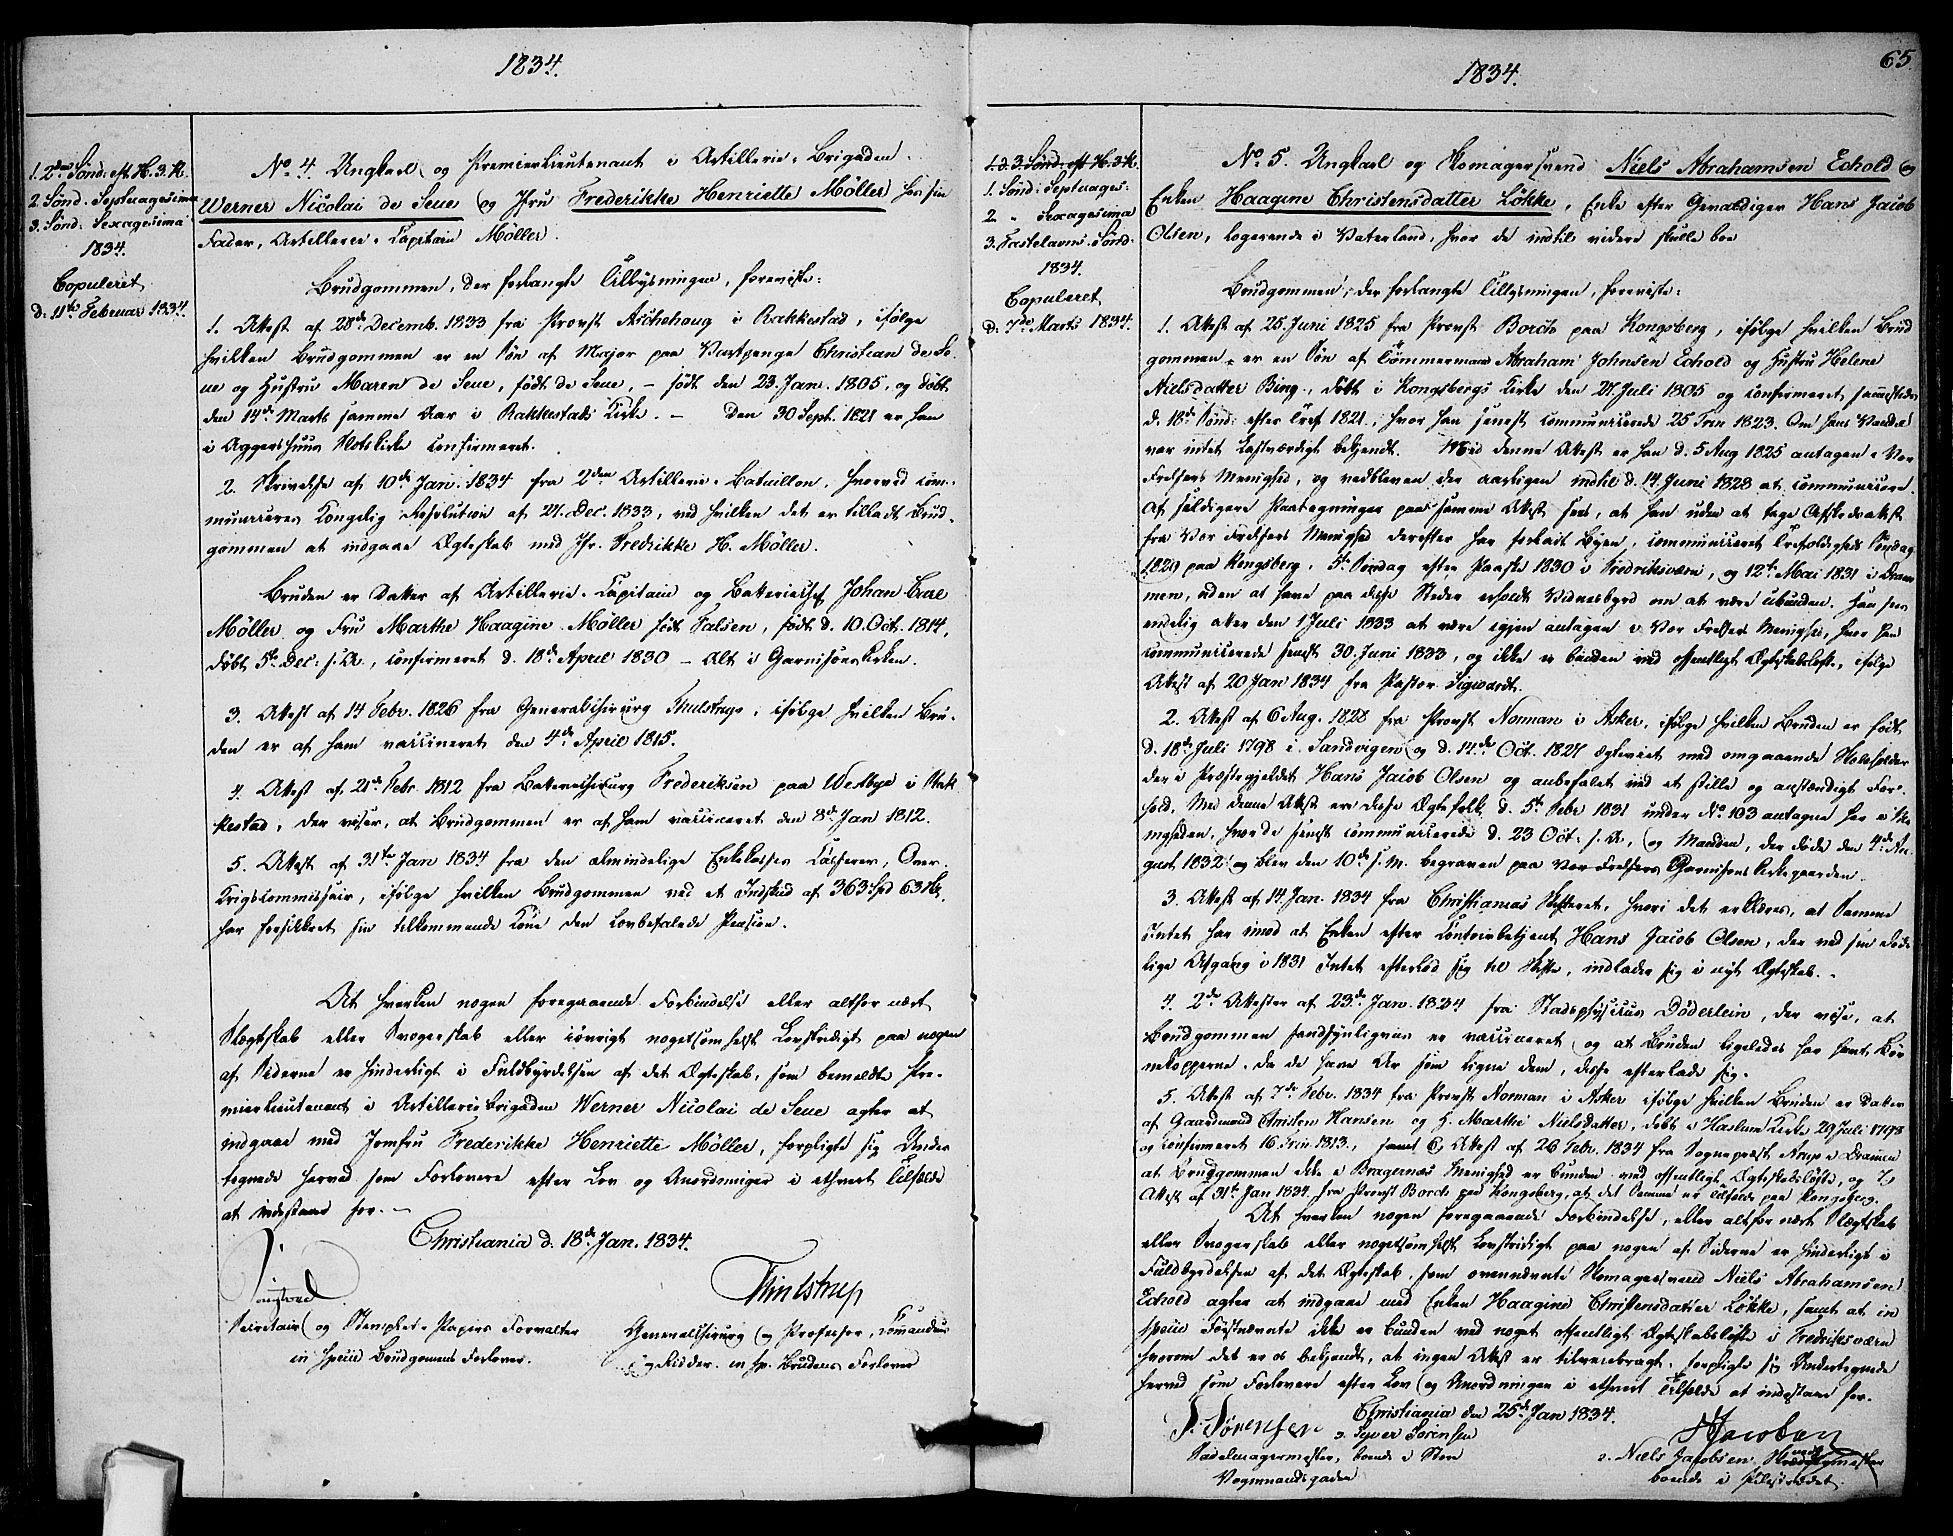 1834.
1. 2den Sönd: eft H. 3. K.
2. Sönd. Septuagesima
3. Sönd: Sexagesima
1834.
Copuleret
d. 11te Februar 1834.
No. 4. Ungkarl og Premierlieutenant i Artillerie-Brigaden
Werner Nicolai de Seue og Jfru Frederikke Henriette Möller hos sin
Fader, Artillerie-Capitain Möller.
Brudgommen, der forlangte Tillysningen, foreviste:
1. Attest af 28de Decemb. 1833 fra Provst Aschehoug i Rakkestad, ifölge
hvilken Brudgommen er en Sön af Major paa Vartpenge Christian de Se-
ue og Hustru Maren de Seue, födt de Seue, – födt den 23. Jan. 1805, og döbt
den 14de Marts samme Aar i Rakkestads Kirke. – Den 30 Sept. 1821 er han
i Aggershuus Slotskirke confirmeret.
2. Skrivelse af 10de Jan. 1834 fra 2den Artillerie-Bataillon, hvorved com-
municeres Kongelig Resolution af 27. Dec. 1833, ved hvilken det er tilladt Brud-
gommen at indgaae Ægteskab med Jfr. Fredrikke H. Möller.
Bruden er Datter af Artillerie-Capitain og Batteriechef Johan
Möller og Fru Marthe Haagine Möller födt Falsen, födt d. 10. Oct. 1814,
döbt 5te Dec: s. A., confirmeret d. 18de April 1830 – Alt i Garnisonskirken.
3. Attest af 14 Febr. 1826 fra Generalchirurg Thulstrup, ifölge hvilken Bru-
den er af ham vaccineret den 4de April 1815.
4. Attest af 21de Febr. 1812 fra Bataillonschirurg Frederiksen paa Westbye i Rak-
kestad, der viser, at Brudgommen er af ham vaccineret den 8de Jan 1812.
5. Attest af 31te Jan 1834 fra den almindelige Enkekasses Casserer, Over-
Krigscommissair, ifölge hvilken Brudgommen ved et Indskud af 363 Spd 63 Sk.
har forsikkret sin tilkommende Kone den lovbefalede Pension.
At hverken nogen foregaaende Forbindelse eller altfor nært
Slægtskab eller Svogerskab eller iövrigt nogetsomhelst Lovstridigt paa nogen
af Siderne er hinderligt i Fuldbyrdelsen af det Ægteskab, som bemeldte Pre-
mierlieutenant i Artilleriebrigaden Werner Nicolai de Seue agter at
indgaae med Jomfru Frederikke Henriette Möller, forpligte sig Under-
tegnede herved som Forlovere efter Lov og Anordninger i ethvert Tilfælde
at indestaae for.–
Christiania d. 18de Jan. 1834.
Thulstrup
Secretair og Stemplet-Papirs Forvalter
in specie Brudgomens Forlover.
Generalchirurg og Professor, Comandeur
og Ridder. in sp. Brudens Forlover
1834.
65.
1. d. 3. Sönd: eft H. 3 K.
1. Sönd: Septuages:
2 " Sexagesima
3. Fastelavns-Sönd.
1834.
Copuleret
d. 7de Marts 1834.
No. 5. Ungkarl og Skomagersvend Niels Abrahamsen Echold og
Enken Haagine Christensdatter Lökke, Enke efter Gevaldiger Hans Jacob
Olsen, logerende i Vaterland, hvor de indtil videre skulle boe
Brudgommen, der forlangte Tillysningen, foreviste:
1. Attest af 25. Juni 1825 fra Provst Borch paa Kongsberg, ifölge hvilken Brud
gommen er en Sön af Tömmermand Abraham Johnsen Echold og Hustru Helene
Nielsdatter Bing, döbt i Kongsbergs Kirke den 21. Juli 1805 og confirmeret sammesteds
d. 18de Sönd: efter Tref 1821, hvor han senest communicerede 25 Trin 1823. Om hans Vandel
var intet Lastværdigt bekjendt. Med denne Attest er han d. 5 Aug 1825 antagen i Vor
Frelsers Menighed, og vedbleven der aarligen indtil d. 14 Juni 1828 at communicere.
Af seldigere Paategninger paa samme Attest sees, at han uden at tage Afskedsattest
fra Vor Frelsers Menighed derefter har forladt Byen, communiceret Trefoldigheds Söndag
1829 paa Kongsberg, 5te Söndag efter Paaske 1830 i Fredriksværn, og 12te Mai 1831 i Dram-
men, uden at have paa disse Steder erholdt Vidnesbyrd om at være ubunden. Han sees
endelig atter den 1 Juli 1833 at være igjen antagen i Vor Frelsers Menighed, hvor han
communicerede senest 30 Juni 1833, og ikke er bunden ved offentligt Ægteskabslöfte, ifölge
Attest af 20 Jan 1834 fra Pastor Sigwardt.
2. Attest af 6 Aug. 1828 fra Provst Norman i Asker, ifölge hvilken Bruden er födt
d. 18de Juli 1798 i Sandvigen og d. 14de Oct. 1827 ægteviet med omgaaende Skoleholder
der i Præstegjeldet Hans Jacob Olsen og anbefalet med et stille og anstændigt For-
hold. Med denne Attest ere disse Ægtefolk d. 5te Febr 1831 under No. 103 antagne her i Me-
nigheden, hvor de senest communicerede d. 23 Oct. s. A., og Manden, der döde den 4de Au-
gust 1832 og blev den 10de s. M. begraven paa Vor Frelsers Garnisons Kirkegaarden.
3. Attest af 14. Jan. 1834 fra Christianias Skifteret, hvori det erklæres, at Samme
Intet har imod at Enken efter Contoirbetjent Hans Jacob Olsen, der ved sin döde-
lige Afgang i 1831 Intet efterlod sig til Skifte, indlader sig i nyt Ægteskab.-
4. 2de Attester af 23de Jan. 1834 fra Stadsphysicus Döderlein, der vise, at
Brudgommen sandsynligviis er vaccineret og at Bruden ligeledes har havt Bör-
nekopperne, da de have Ar som ligne dem, disse efterlade sig.
5. Attest af 7de Febr. 1834 fra Provst Norman i Asker ifölge hvilken Bruden er Datter
af Gaardmand Christen Hansen og H. Marthe Nielsdatter, döbt i Haslum Kirke 29 Juli 1798
og confirmeret 16 Trin 1813, samt 6, Attest af 26 Febr. 1834 fra Sognepræst Arup i Drammen
at Brudgommen ikke i Bragernæs Menighed er bunden ved offentligt Ægteskabslöfte, og 7,
Attest af 31te Jan 1834 fra Provst Borch paa Kongsberg, at det Samme er Tilfælde paa Kongsberg.
At hverken nogen foregaaende Forbindelse, eller altfor nært Slægtskab
eller Svogerskab eller nogetsomhelst Lovstridigt paa nogen af Siderne er hinderligt i
Fuldbyrdelsen af det Ægteskab, som ovennævnte Skomagersvend Niels Abrahamsen
Echold agter at indgaae med Enken Haagine Christensdatter Lökke, samt at in
specie Förstnævnte ikke er bunden ved noget offentligt Ægteskabslöfte i Fredriksværn
hvorom det er os bekjendt, at ingen Attest er tilveiebragt, forpligte sig Undertegnede
herved som Forlovere efter Lov og Anordningen i ethvert Tilfælde at indestaae for.
Christiania den 25de Jan 1834.
S. Sörensen
NJacobsen
: Syver Sörensen
Sadelmagermester, boende i Store
Vognmandsgaden
: Niels Jacobsen
boende i Pilestrædet